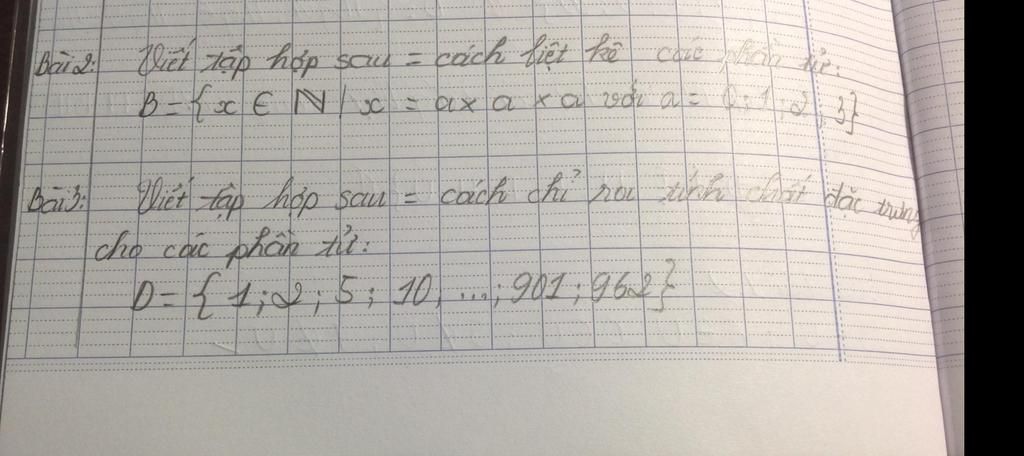 Bài 2: Viết tập hợp sau = cách liệt kê các phần tử:
B = {x ∈ N / x = a x a x a với a = 0; 1; 2; 3}
Bài 3: Viết tập hợp sau = cách chỉ ra tính chất đặc trưng
cho các phần tử:
D = { 1; 2; 5; 10, ...; 901; 962}